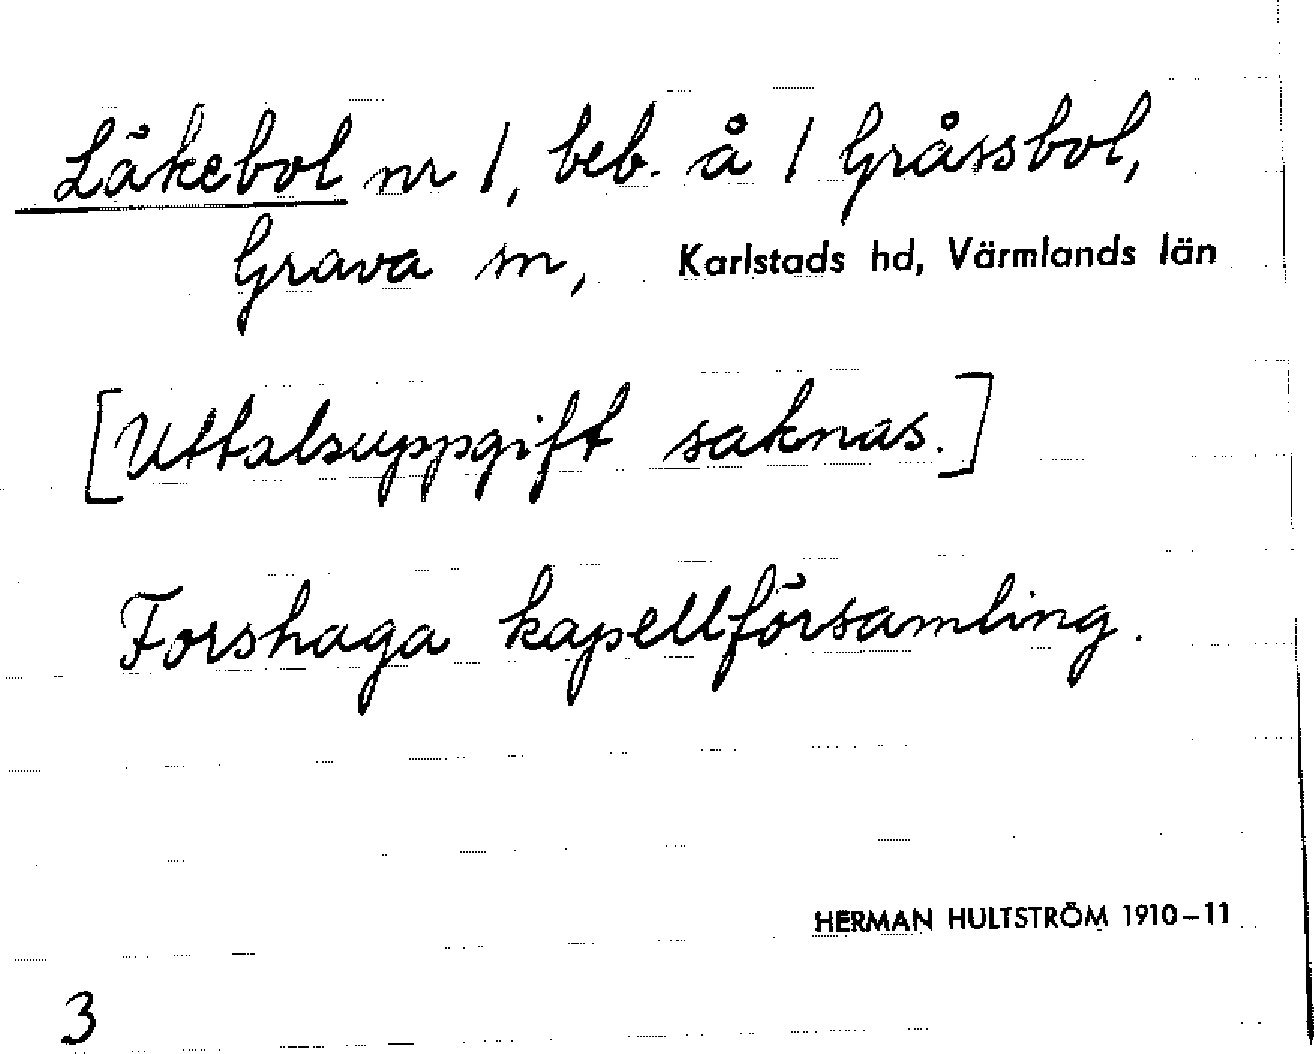 Läkebol nr 1, beb. å 1 Gråssbol,
Grava sn, Karlstads hd, Värmlands län
[Uttalsuppgift saknas.]
Forshaga kapellförsamling.
HERMAN HULTSTRÖM 1910–11
3